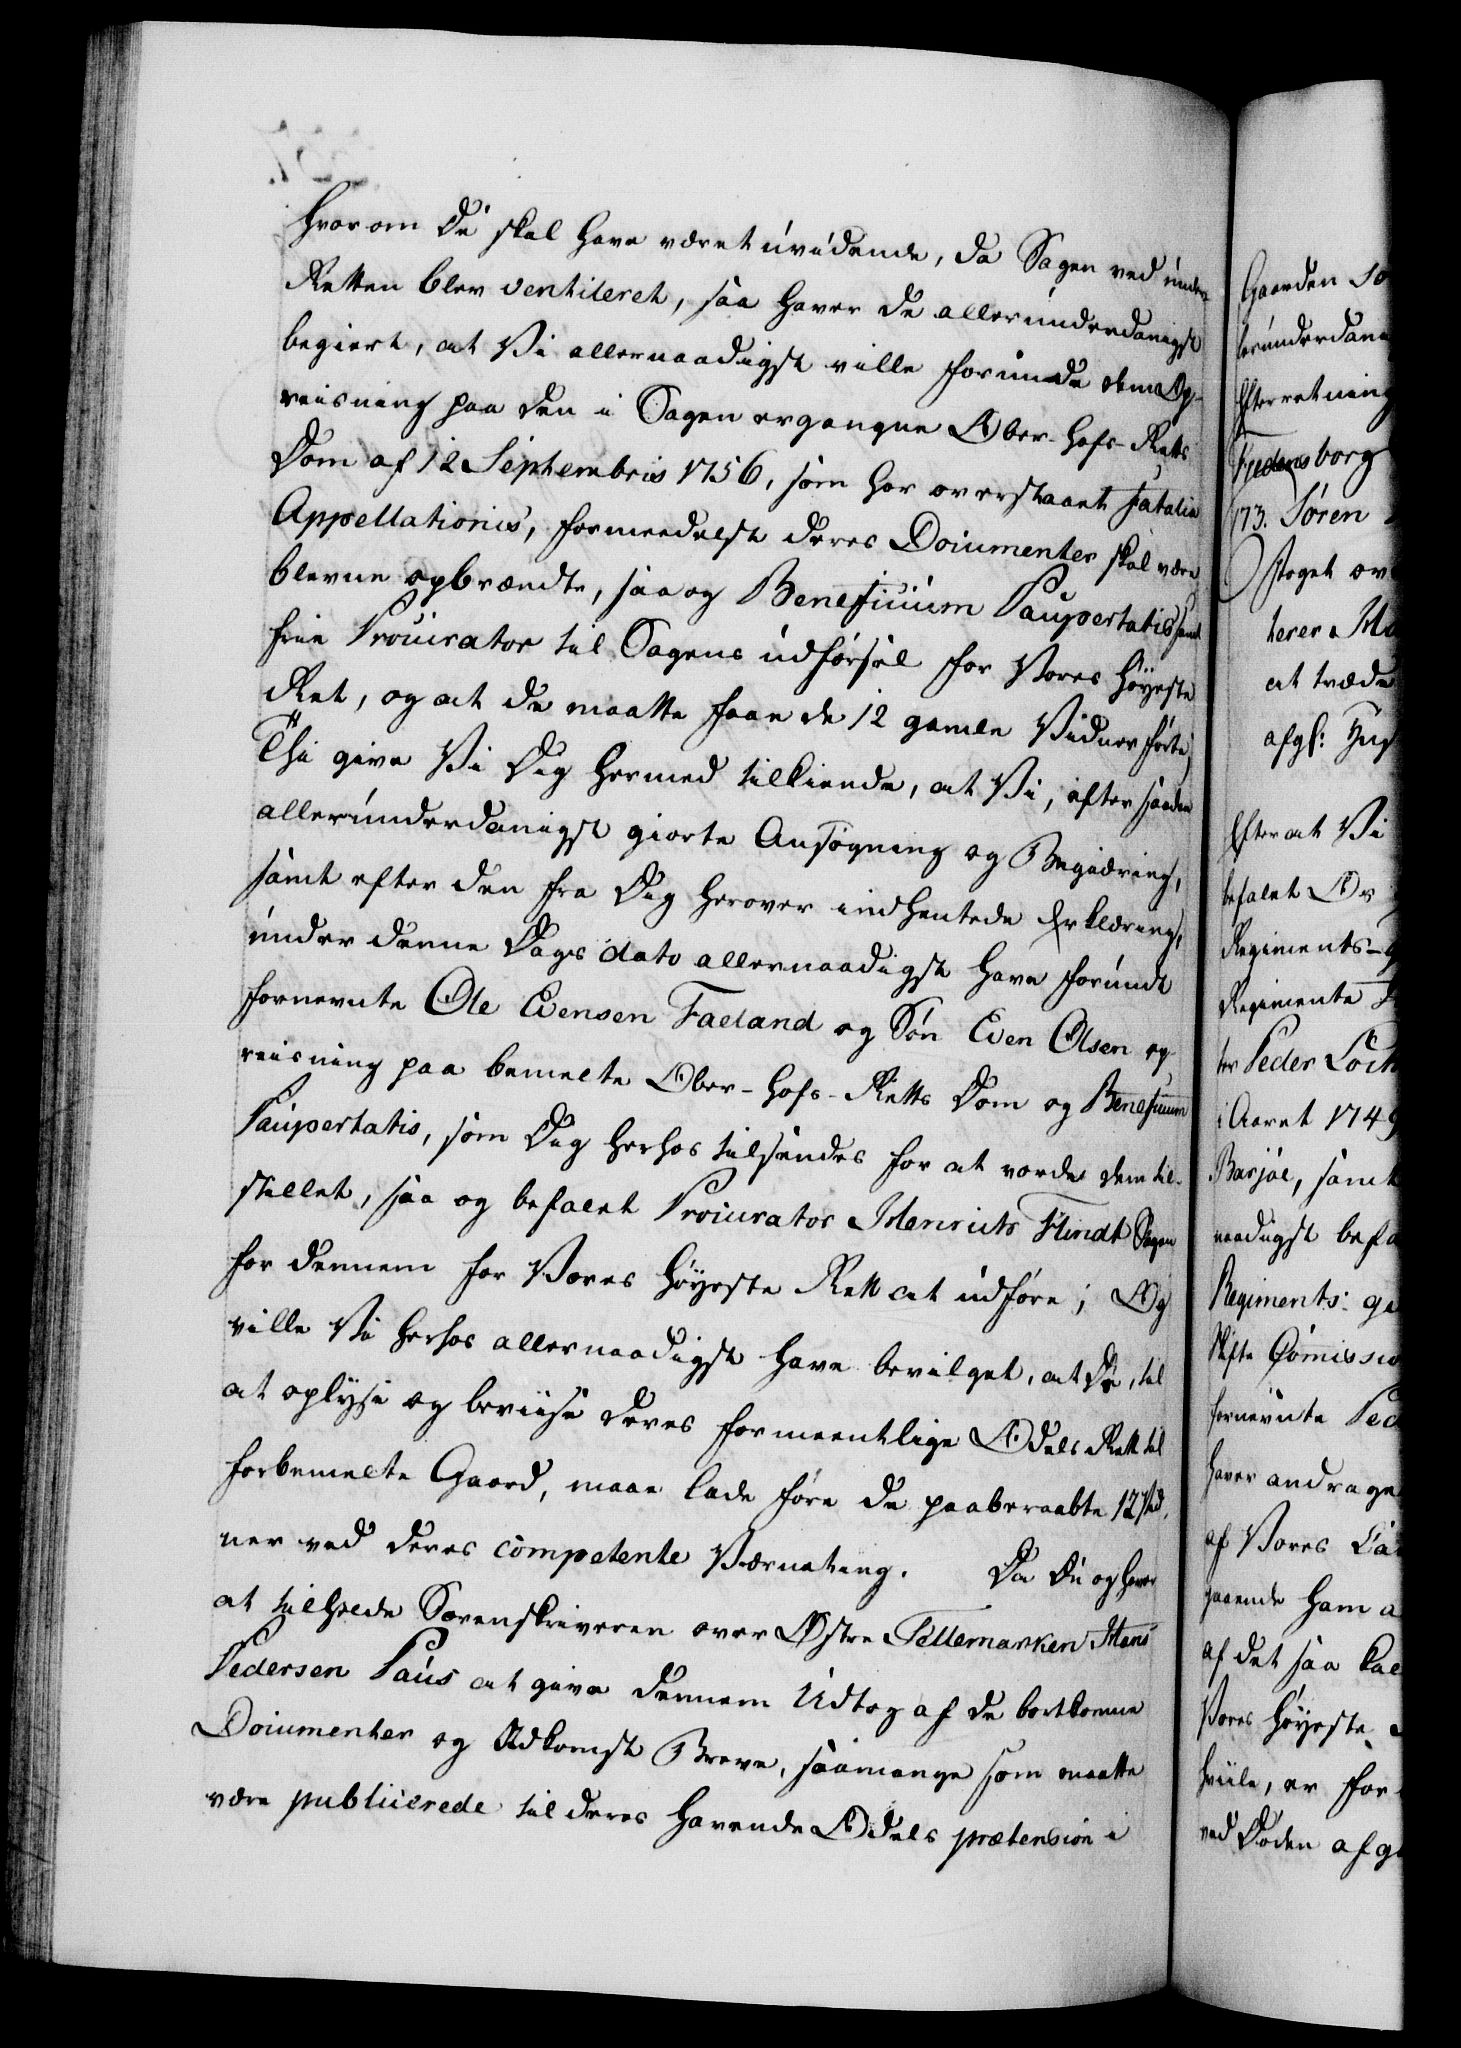 hvorom De skal have været uvidende, da Sagen ved under
Retten blev ventileret, saa haver de allerunderdanigst
begiert, at Vi allernaadigst ville forunde dem Op-
reisning paa den i Sagen ergangne Ober-Hofs-Retts
Dom af 12 Septembris 1756, som har overstaaet Fatalia
Appellationis, formedelst deres Documenter skal være
blevne opbrændte, saa og Beneficium Paupertatis samt
frie Procurator til Sagens udførsel for Vores Høyeste
Ret, og at de maatte faae de 12 gamle Vidner førte;
Thi give Vi Dig hermed tilkiende, at Vi, efter saadan
allerunderdanigst giorte Ansøgning og Begiæring,
samt efter den fra Dig herover indhentede Erklæring,
under denne Dags dato allernaadigst have forundt
fornevnte Ole Evensen Faeland og Søn Even Olsen op-
reisning paa bemelte Ober-Hofs-Retts Dom og Beneficium
Paupertatis, som Dig herhos tilsendes for at vorde dem til-
stillet, saa og befalet Procurator Henrich Flindt Sagen
for dennem for Vores Høyeste Rett at udføre; Og
ville Vi herhos allernaadigst have bevilget, at De, til
at oplyse og beviise deres formeentlige Odels Rett til
forbemelte Gaard, maae lade føre de paaberaabte 12 Vid-
ner ved deres competente Værneting. Da Du og haver
at tilholde Sorenskriveren over Østre Tellemarken Hans
Pedersen Paus at give dennem Udtog af de bortkomne
Documenter og Adkomst Breve, saamange som maatte
være publicerede til deres havende Odels prætension i

Gaarden
lerunderdan
Efterretning
Fredensborg
173. Søren
at træde
Efter at Vi
befalet
Regiments-
Regimente
ter Peder
i Aaret 1749
samt
naadigst befa
Regiments
Skifte Commissio
fornevnte Ped
haver andrage
af Vores
gaaende ham a
af det saa kal
Vores Høyeste
hviile, er for
ved Døden afg